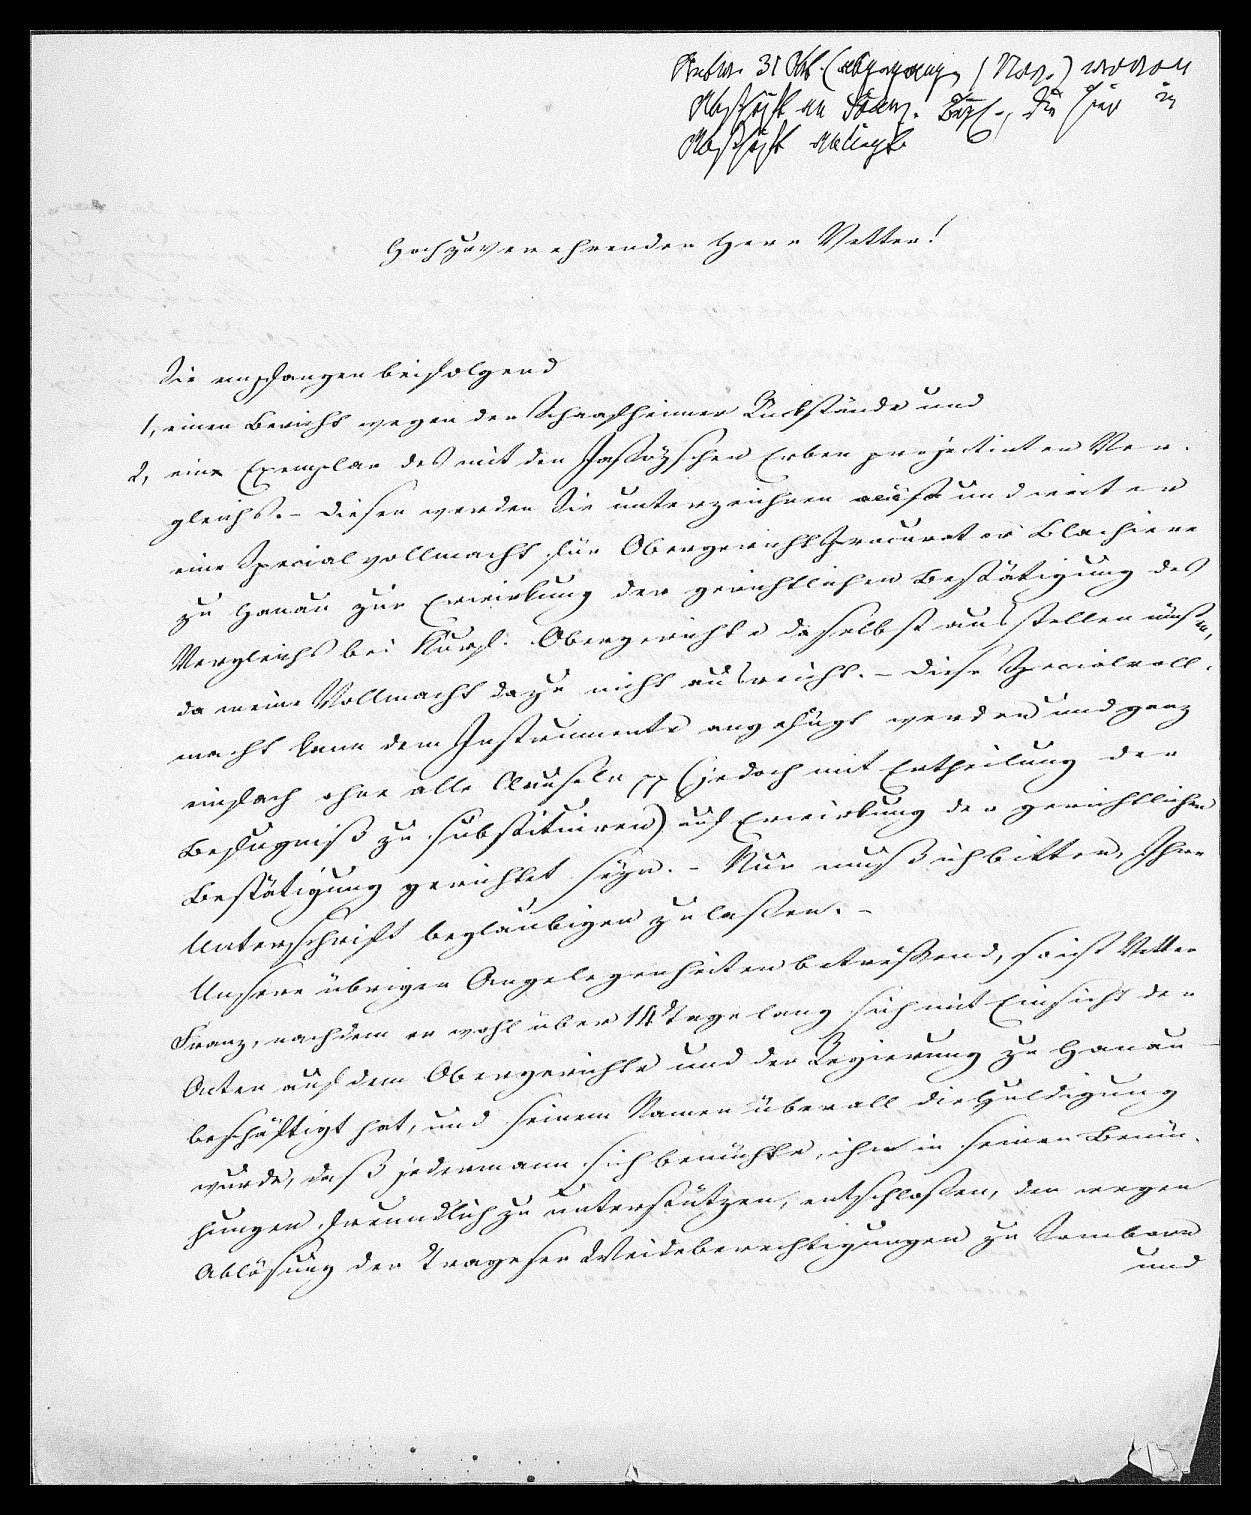 Antw. 31 Okt. (abgegangen 1 Nov.) wovon
Abschrift an Franz. , die hier in
Abschrift anliegt
Hochzuverehrender Herr Vetter!
Sie empfangen beifolgend
1, einen Bericht wegen der Schaafheimer Rückstände und
2, ein Exemplar des mit den Jassoyschen Erben projectirten Ver-
gleichs. – Diesen werden Sie unterzeichnen und weiter
eine Specialvollmacht für Obergerichtsprocurator Blachiere
zu Hanau zur Erwirkung der gerichtlichen Bestätigung des
Vergleichs bei Kurf. Obergerichte daselbst ausstellen müssen,
da meine Vollmacht dazu nicht ausreicht. – Diese Specialvoll-
macht kann dem Instrumente angefügt werden und ganz
einfach ohne alle Clauseln pp (jedoch mit Ertheilung der
Befugniß zu substituiren) auf Erwirkung der gerichtlichen
Bestätigung gerichtet seyn. – Nur muß ich bitten, Ihre
Unterschrift beglaubigen zu lassen. –
Unsere übrigen Angelegenheiten betreffend, so ist Vetter
Franz, nachdem er wohl über 14 Tage lang sich mit Einsicht der
Acten auf dem Obergerichte und der Regierung zu Hanau
beschäftigt hat, und seinem Namen überall die Huldigung
wurde, daß jedermann sich bemühte, ihn in seinen Bemü-
hungen freundlich zu unterstützen, entschlossen, den wegen
Ablösung der Trageser Weideberechtigungen zu Somborn
und